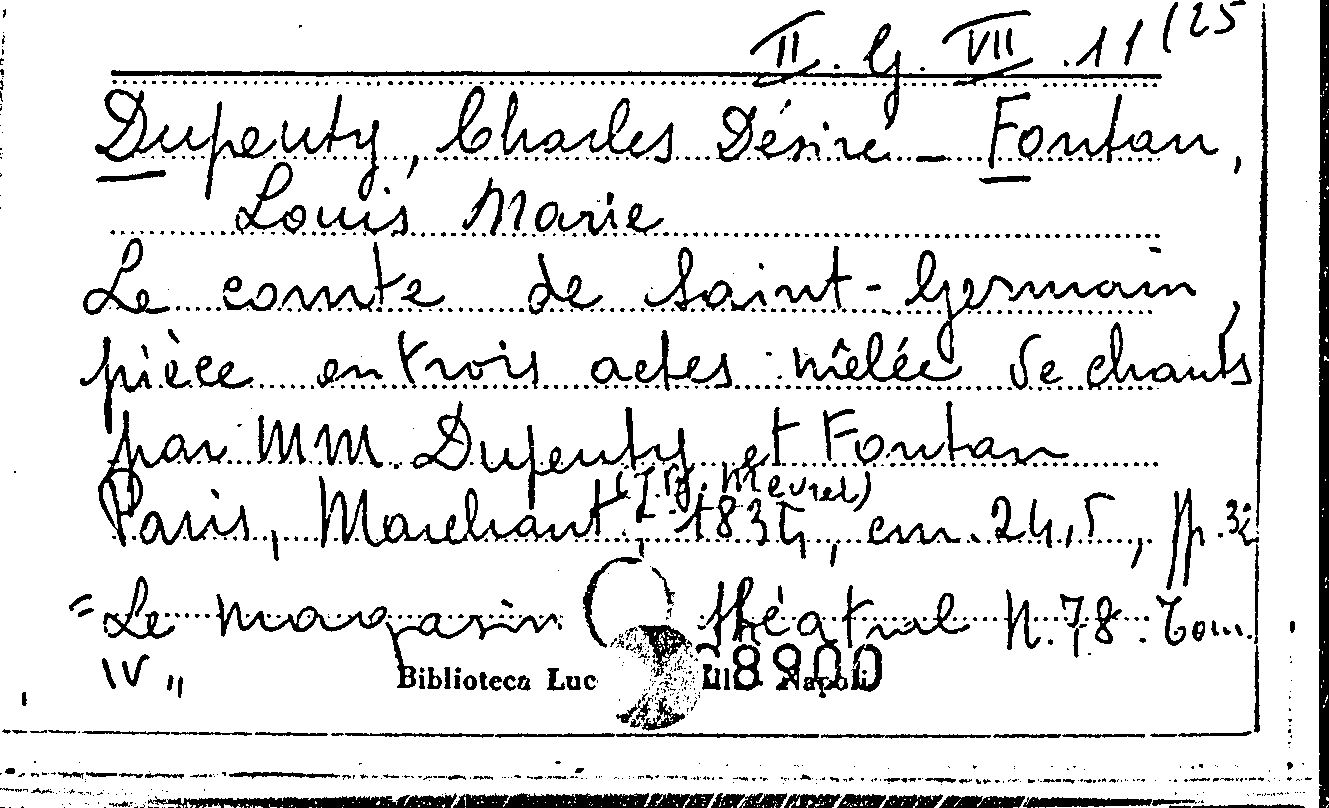 II. G. VII. 11 (25
Dupeuty, Charles Désiré - Fontan,
Louis Marie
Le comte de Saint-Germain,
pièce en trois actes mêlée de chants
par MM. Dupeuty et Fontan
Paris, Marchant 1834, cm. 24,5, pp. 32
"Le magasin théatral N. 78. Tom.
IV"
Biblioteca Luc Napoli
8900